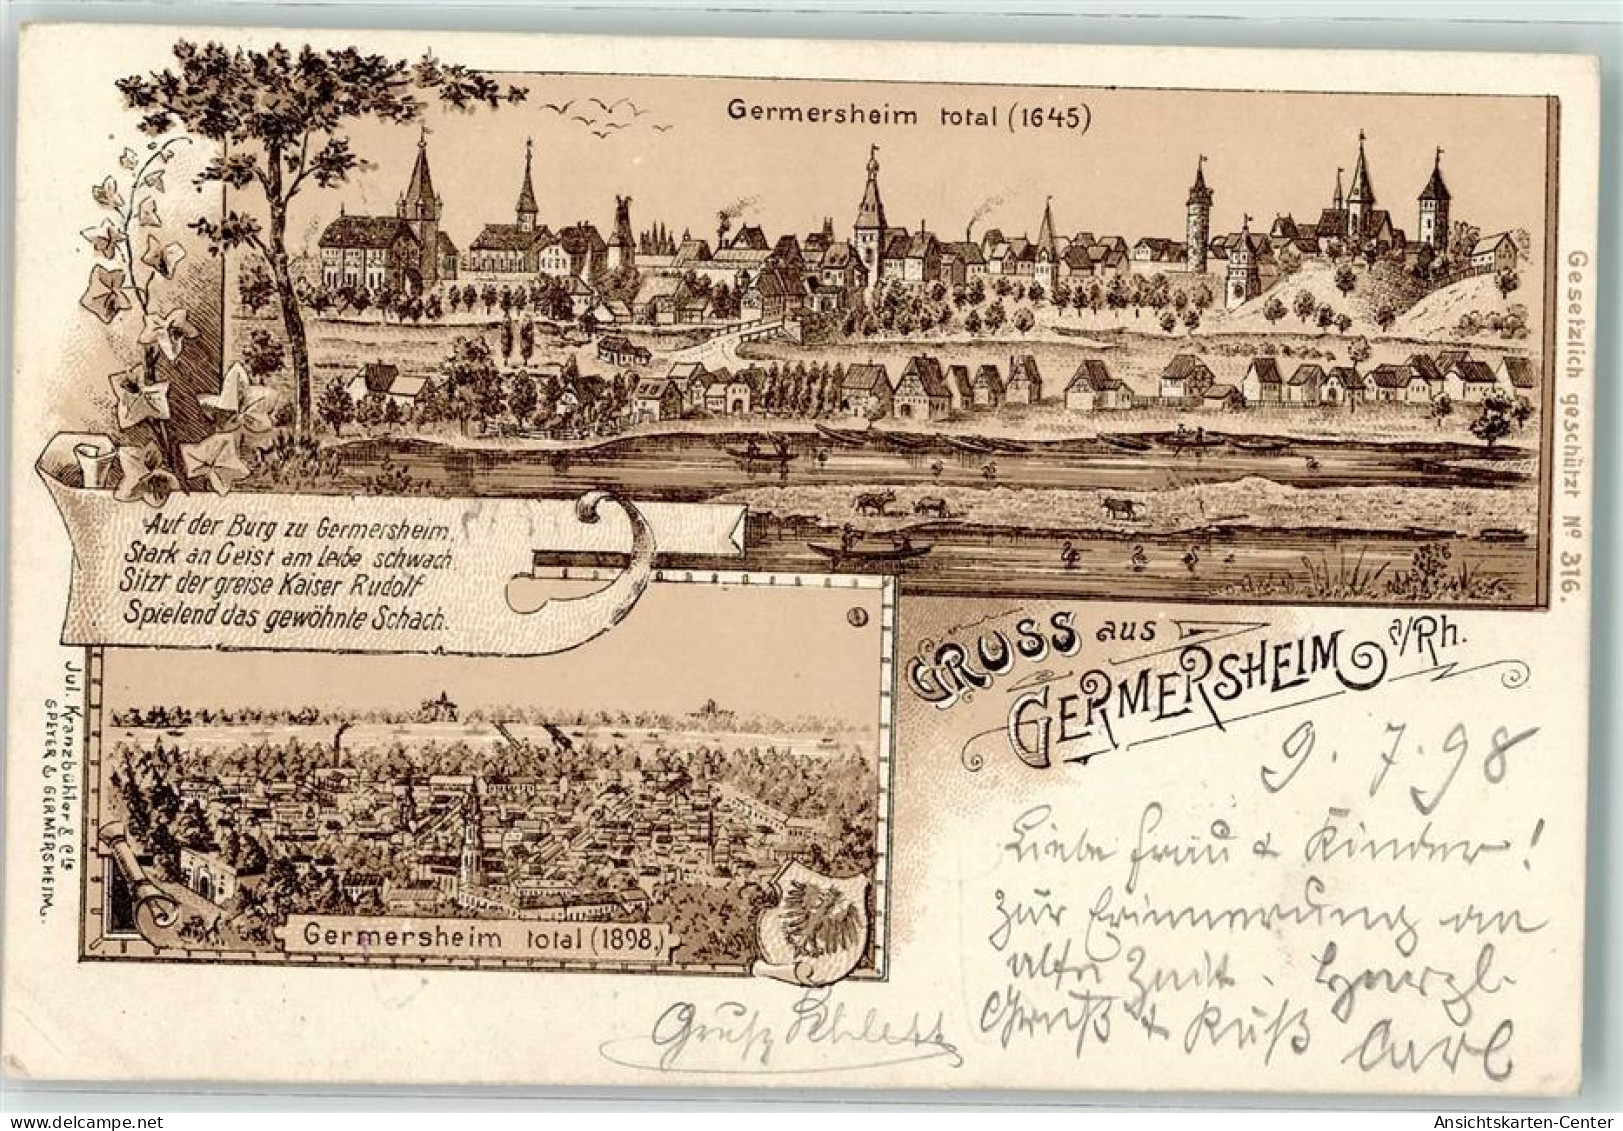 Germersheim total (1645)
Gesetzlich geschützt No 316.
Auf der Burg zu Germersheim,
Stark an Geist am Leibe schwach
Sitzt der greise Kaiser Rudolf
Spielend das gewöhnte Schach.
GRUSS aus
GERMERSHEIM a/Rh.
Jul. Kranzbühler & Cie
SPEYER & GERMERSHEIM.
Germersheim total (1898.)
9.7.98
Liebe Frau & Kinder!
Zur Erinnerung an
alte Zeit. Herzl.
Gruß & Kuß
Carl
Gruß
Ansichtskarten-Center